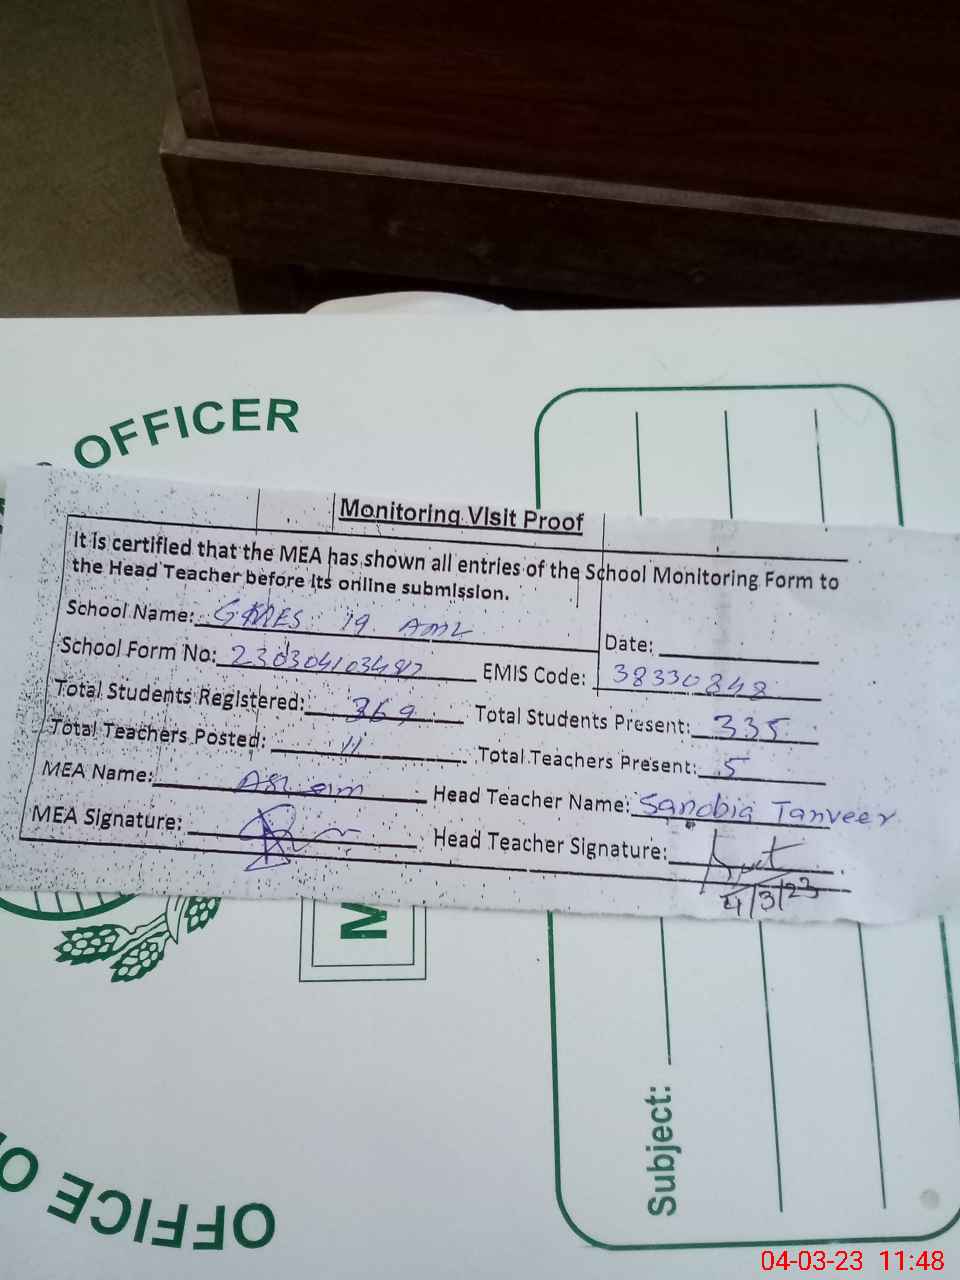 OFFICER
Monitoring Visit Proof
It is certified that the MEA has shown all entries of the School Monitoring Form to
the Head Teacher before its online submission.
School Name: 19
Date:
School Form No: EMIS Code: 38330848
Total Students Registered: 369 Total Students Present: 335
Total Teachers Posted: 11 Total Teachers Present: 5
MEA Name: Head Teacher Name: Sanobia Tanveer
MEA Signature: Head Teacher Signature:
4/3/23
M
Subject:
OFFICE O
04-03-23 11:48